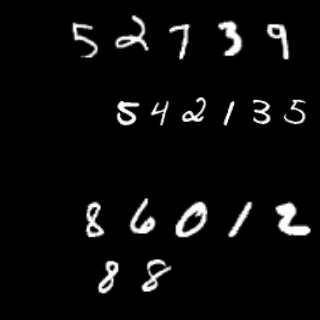 52739
542135
86012
88